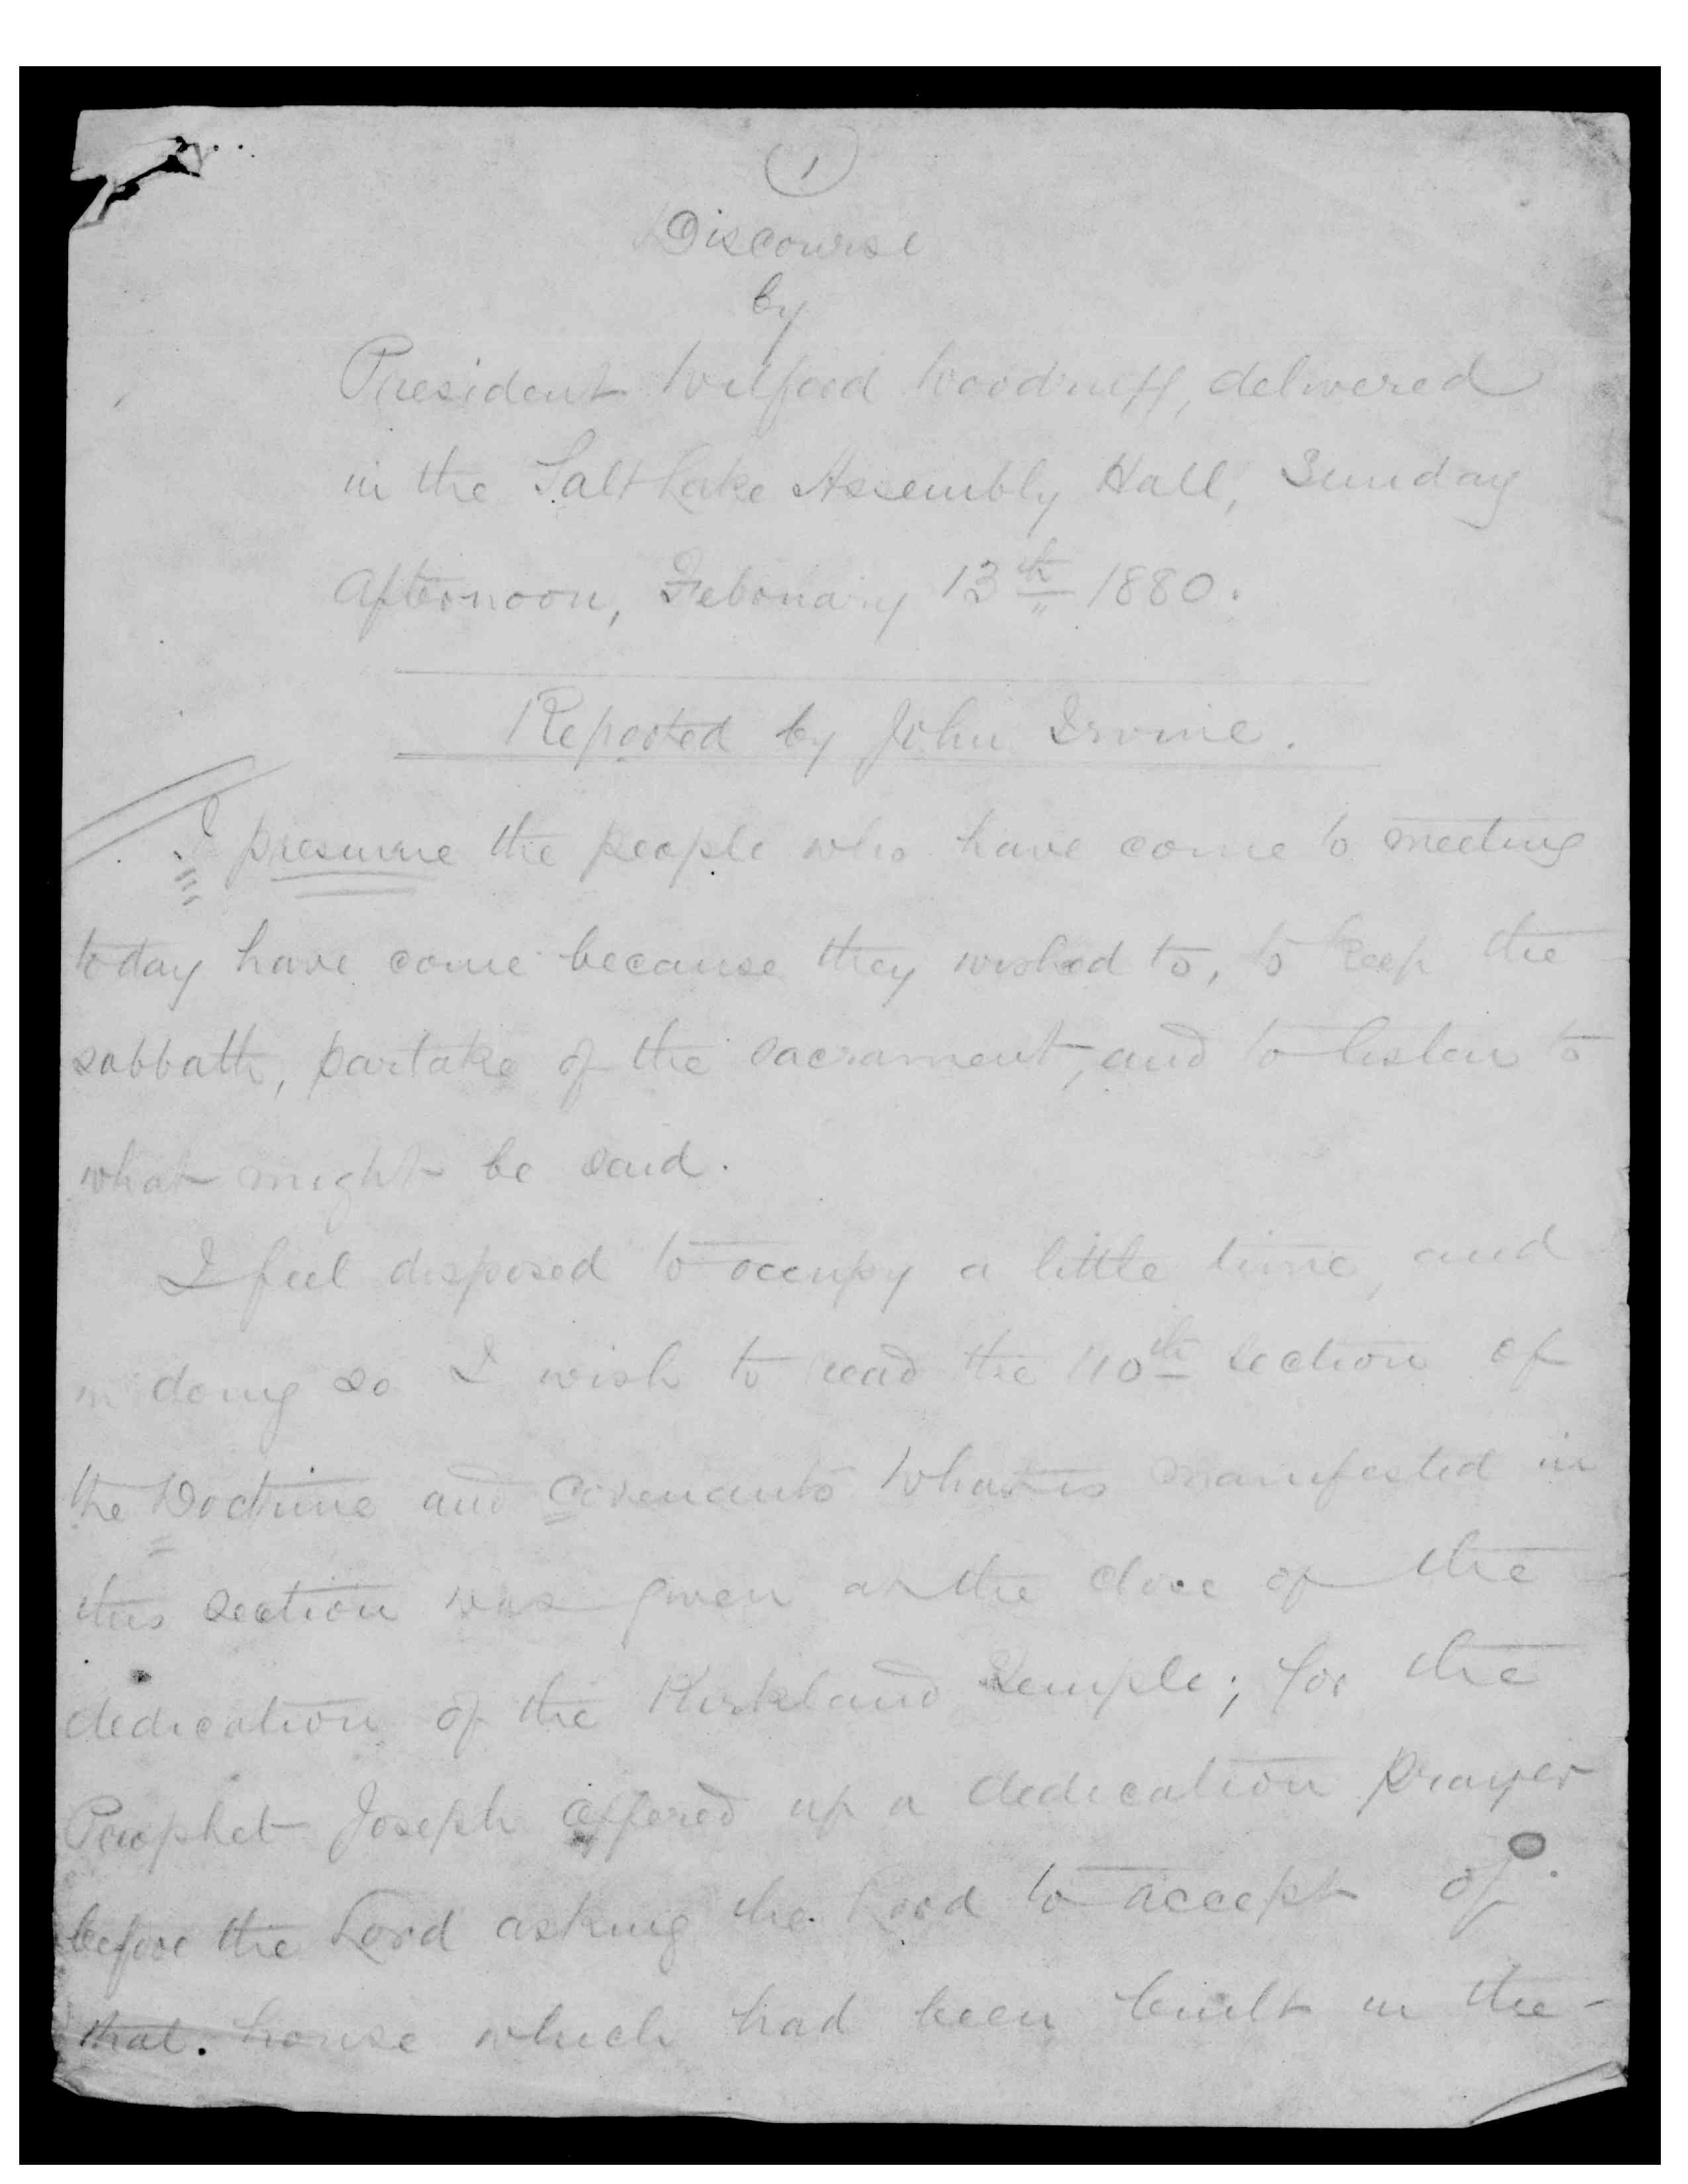 1
Discourse
by
President Wilford Woodruff, delivered
in the Salt Lake Assembly Hall, Sunday
afternoon, February 13th 1880.
Reported by John Irvine.
I presume the people who have come to meeting
today have come because they wished to, to keep the
sabbath, partake of the sacrament, and to listen to
what might be said.
I feel disposed to occupy a little time, and
in doing so I wish to read the 110th section of
the Doctrine and Covenants What is manifested in
this section was given at the close of the
dedication of the Kirkland Temple; for the
Prophet Joseph offered up a dedication prayer
before the Lord asking the Lord to accept of
that house which had been built in the